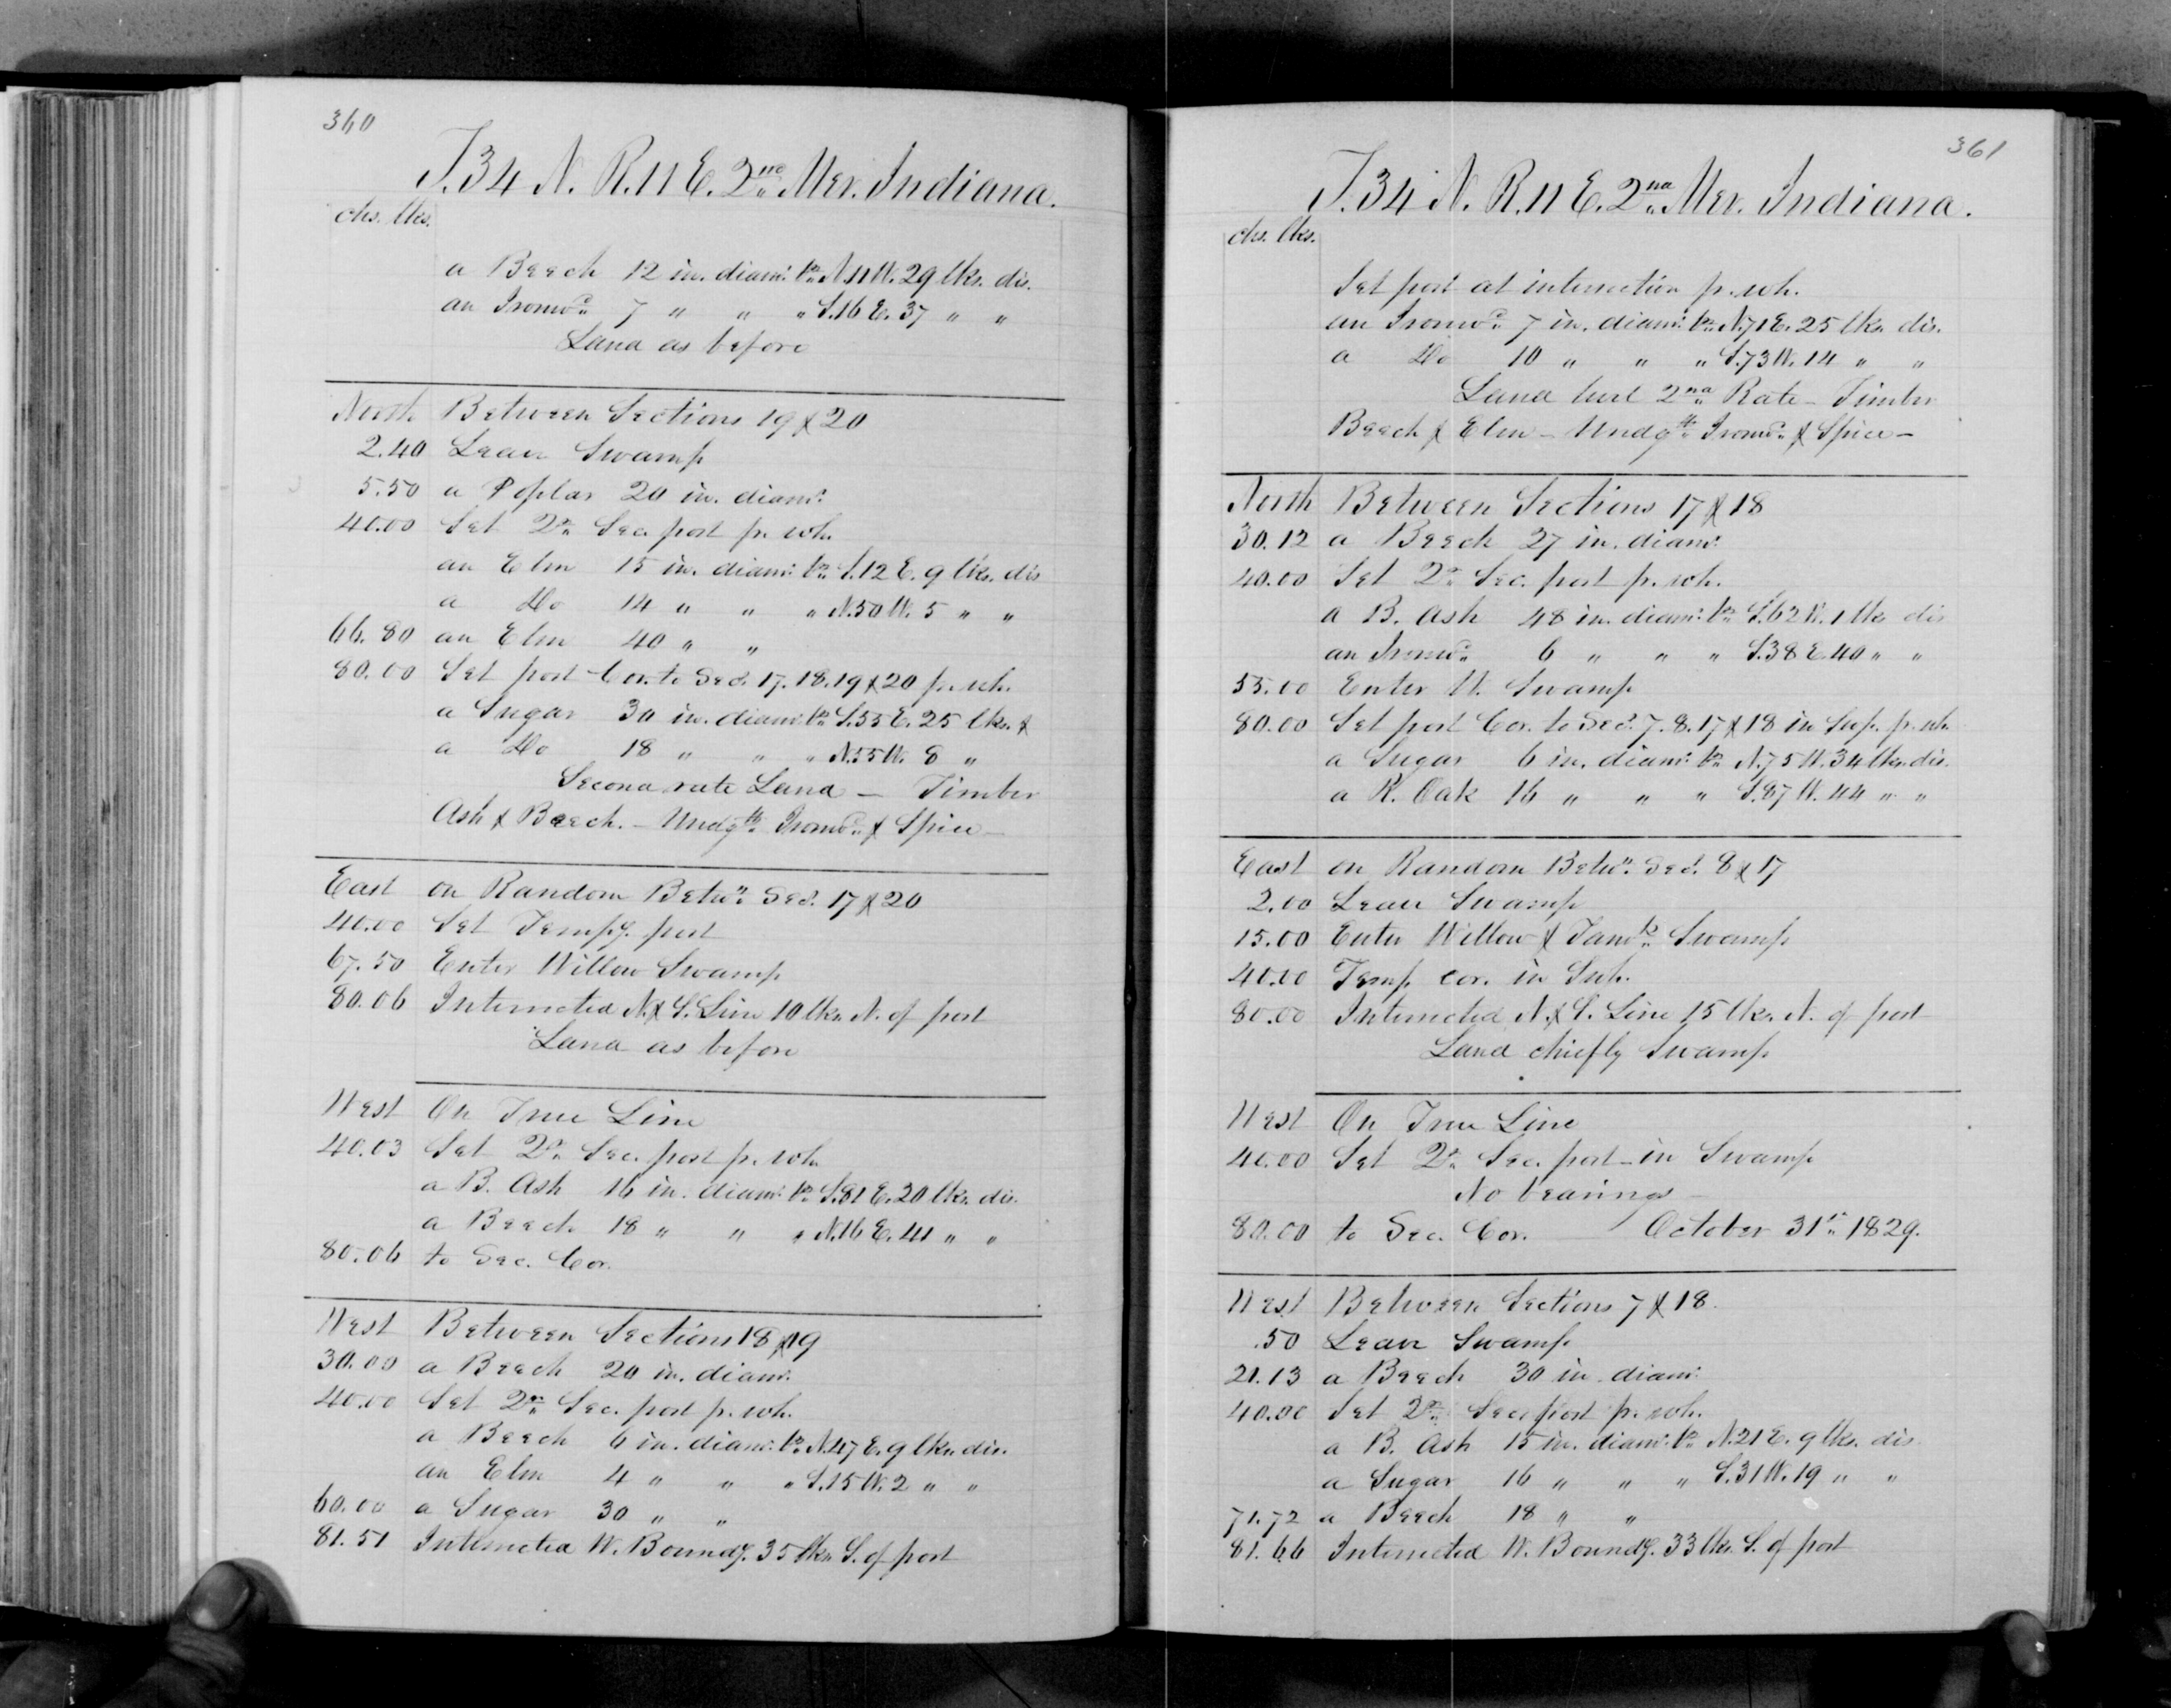 360
T.34 N. R.11 E. 2nd Mer. Indiana.
chs. lks.
a Beech 12 in. diam: brs N.11 W. 29 lks. dis.
an Ironwd 7 " " " S.16 E. 37 " "
Land as before
North Between Sections 19 & 20
2.40 Leave Swamp
5.50 a Poplar 20 in. diam:
40.00 Set Qr. Sec. post pr. wh.
an Elm 15 in. diam: brs S.12 E. 9 lks. dis
a Do 14 " " " N.50 W. 5 " "
66.80 an Elm 40 " "
80.00 Set post Cor. to Secs. 17. 18. 19 & 20 pr. wh.
a Sugar 30 in. diam: brs S.55 E. 25 lks. &
a Do 18 " " " N.55 W. 8 "
Second rate Land — Timber
Ash & Beech. — Undgth Ironwd & Spice —
East on Random Betwn Secs. 17 & 20
40.00 Set Tempy. post
67.50 Enter Willow Swamp
80.06 Intersected N. & S. Line 10 lks. N. of post
Land as before
West On True Line
40.03 Set Qr. Sec. post pr. wh.
a B. Ash 16 in. diam: brs S.81 E. 20 lks. dis.
a Beech 18 " " " N.16 E. 41 " "
80.06 to Sec. Cor.
West Between Sections 18 & 19
30.00 a Beech 20 in. diam:
40.00 Set Qr. Sec. post pr. wh.
a Beech 6 in. diam: brs N.47 E. 9 lks. dis.
an Elm 4 " " " S.15 W. 2 " "
60.00 a Sugar 30 " "
81.51 Intersected W. Boundy. 35 lks. S. of post
361
T.34 N. R.11 E. 2nd Mer. Indiana.
chs. lks.
Set post at intersection pr. wh.
an Ironwd 7 in. diam: brs N.71 E. 25 lks. dis.
a Do 10 " " " S.73 W. 14 " "
Land level 2nd Rate — Timber
Beech & Elm — Undgth Ironwd & Spice —
North Between Sections 17 & 18
30.12 a Beech 27 in. diam:
40.00 Set Qr. Sec. post pr. wh.
a B. Ash 48 in. diam: brs S.62 W. 1 lk. dis
an Ironwd 6 " " " S.38 E. 40 " "
55.00 Enter W. Swamp
80.00 Set post Cor. to Secs. 7. 8. 17 & 18 in Swp. pr. wh.
a Sugar 6 in. diam: brs N.75 W. 34 lks. dis.
a R. Oak 16 " " " S.87 W. 44 " "
East on Random Betwn Secs. 8 & 17
2.00 Leave Swamp
15.00 Enter Willow & Tamk Swamp
40.00 Temp cor. in Swp.
80.00 Intersected N. & S. Line 15 lks. N. of post
Land chiefly Swamp
West On True Line
40.00 Set Qr. Sec. post in Swamp
No bearings —
80.00 to Sec. Cor. October 31st 1829.
West Between Sections 7 & 18.
.50 Leave Swamp
21.13 a Beech 30 in. diam:
40.00 Set Qr. Sec. post pr. wh.
a B. Ash 15 in. diam: brs N.21 E. 9 lks. dis
a Sugar 16 " " " S.31 W. 19 " "
71.72 a Beech 18 " "
81.66 Intersected W. Boundy. 33 lks. S. of post